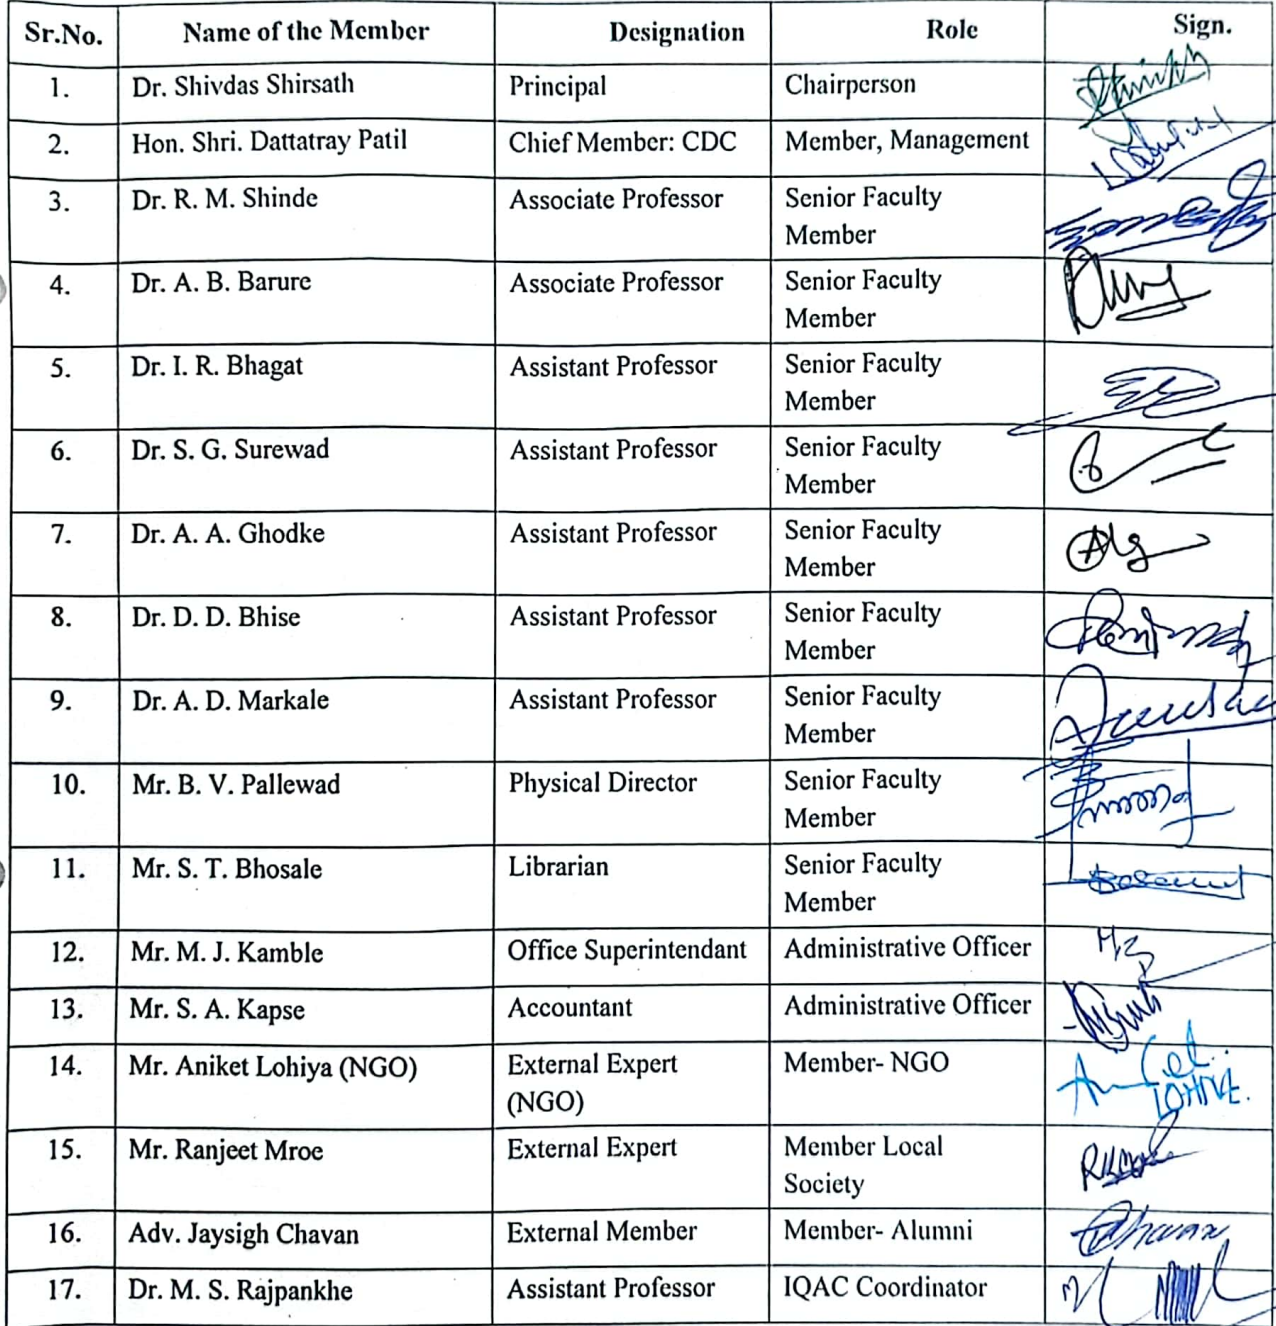 Sr.No. Name of the Member Designation Role Sign.
1. Dr. Shivdas Shirsath Principal Chairperson
2. Hon. Shri. Dattatray Patil Chief Member: CDC Member, Management
3. Dr. R. M. Shinde Associate Professor Senior Faculty
Member
4. Dr. A. B. Barure Associate Professor Senior Faculty
Member
5. Dr. I. R. Bhagat Assistant Professor Senior Faculty
Member
6. Dr. S. G. Surewad Assistant Professor Senior Faculty
Member
7. Dr. A. A. Ghodke Assistant Professor Senior Faculty
Member
8. Dr. D. D. Bhise Assistant Professor Senior Faculty
Member
9. Dr. A. D. Markale Assistant Professor Senior Faculty
Member
10. Mr. B. V. Pallewad Physical Director Senior Faculty
Member
11. Mr. S. T. Bhosale Librarian Senior Faculty
Member
12. Mr. M. J. Kamble Office Superintendant Administrative Officer
13. Mr. S. A. Kapse Accountant Administrative Officer
14. Mr. Aniket Lohiya (NGO) External Expert Member- NGO
(NGO)
15. Mr. Ranjeet Mroe External Expert Member Local
Society
16. Adv. Jaysigh Chavan External Member Member- Alumni
17. Dr. M. S. Rajpankhe Assistant Professor IQAC Coordinator